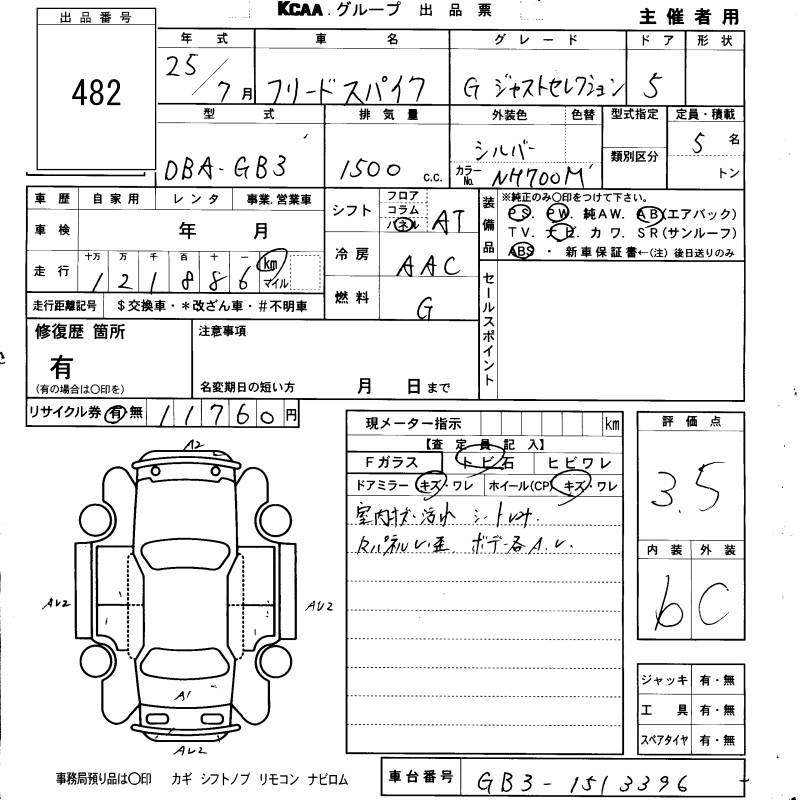 KCAA.グループ 出品票
主催者用
出品番号
482
年式 車名 グレード ドア 形状
25/7月 フリードスパイク G ジャストセレクション 5
型式 排気量 外装色 色替 型式指定 定員・積載
DBA-GB3 1500 c.c. シルバー カラーNo. NH700M 類別区分 5名
トン
車歴 自家用 レンタ 事業.営業車
車検 年 月
走行 十万 万 千 百 十 一
121886 km マイル
走行距離記号 $交換車・*改ざん車・#不明車
シフト フロア コラム パネル AT
冷房 AAC
燃料 G
装備品
※純正のみ○印をつけて下さい。
PS. PW. 純AW. AB(エアバック)
TV. ナビ カワ. SR(サンルーフ)
ABS・新車保証書←(注)後日送りのみ
セールスポイント
修復歴 箇所
有
(有の場合は○印を)
注意事項
名変期日の短い方 月 日まで
リサイクル券 有 無 11760円
現メーター指示 km
【査定員記入】
Fガラス トビ石 ヒビワレ
ドアミラー キズ・ワレ ホイール(CP) キズ・ワレ
室内キズ・汚れ シートレ
RパネルL歪 ボデー各A.U.
評価点
3.5
内装 外装
6 C
A2
AU2
AU2
A1
AU2
ジャッキ 有・無
工具 有・無
スペアタイヤ 有・無
事務局預り品は○印 カギ シフトノブ リモコン ナビロム
車台番号 GB3-1513396